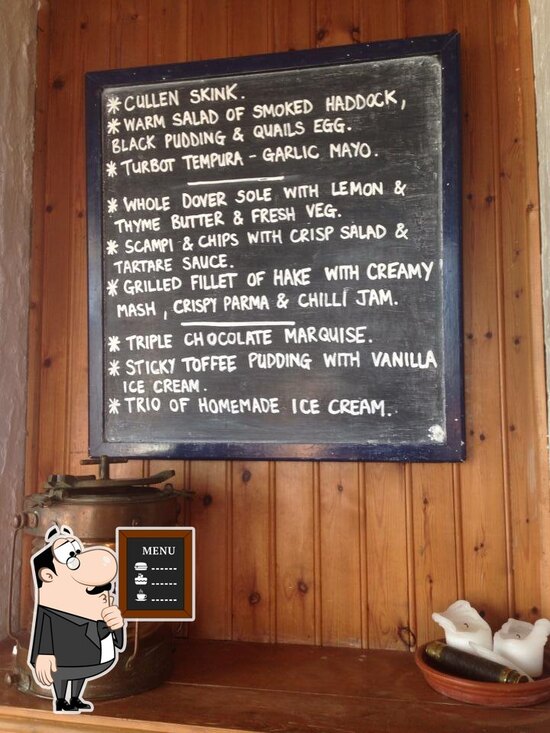 * CULLEN SKINK.
* WARM SALAD OF SMOKED HADDOCK,
BLACK PUDDING & QUAILS EGG.
* TURBOT TEMPURA - GARLIC MAYO.
* WHOLE DOVER SOLE WITH LEMON &
THYME BUTTER & FRESH VEG.
* SCAMPI & CHIPS WITH CRISP SALAD &
TARTARE SAUCE.
* GRILLED FILLET OF HAKE WITH CREAMY
MASH, CRISPY PARMA & CHILLI JAM.
* TRIPLE CHOCOLATE MARQUISE.
* STICKY TOFFEE PUDDING WITH VANILLA
ICE CREAM.
* TRIO OF HOMEMADE ICE CREAM.
MENU